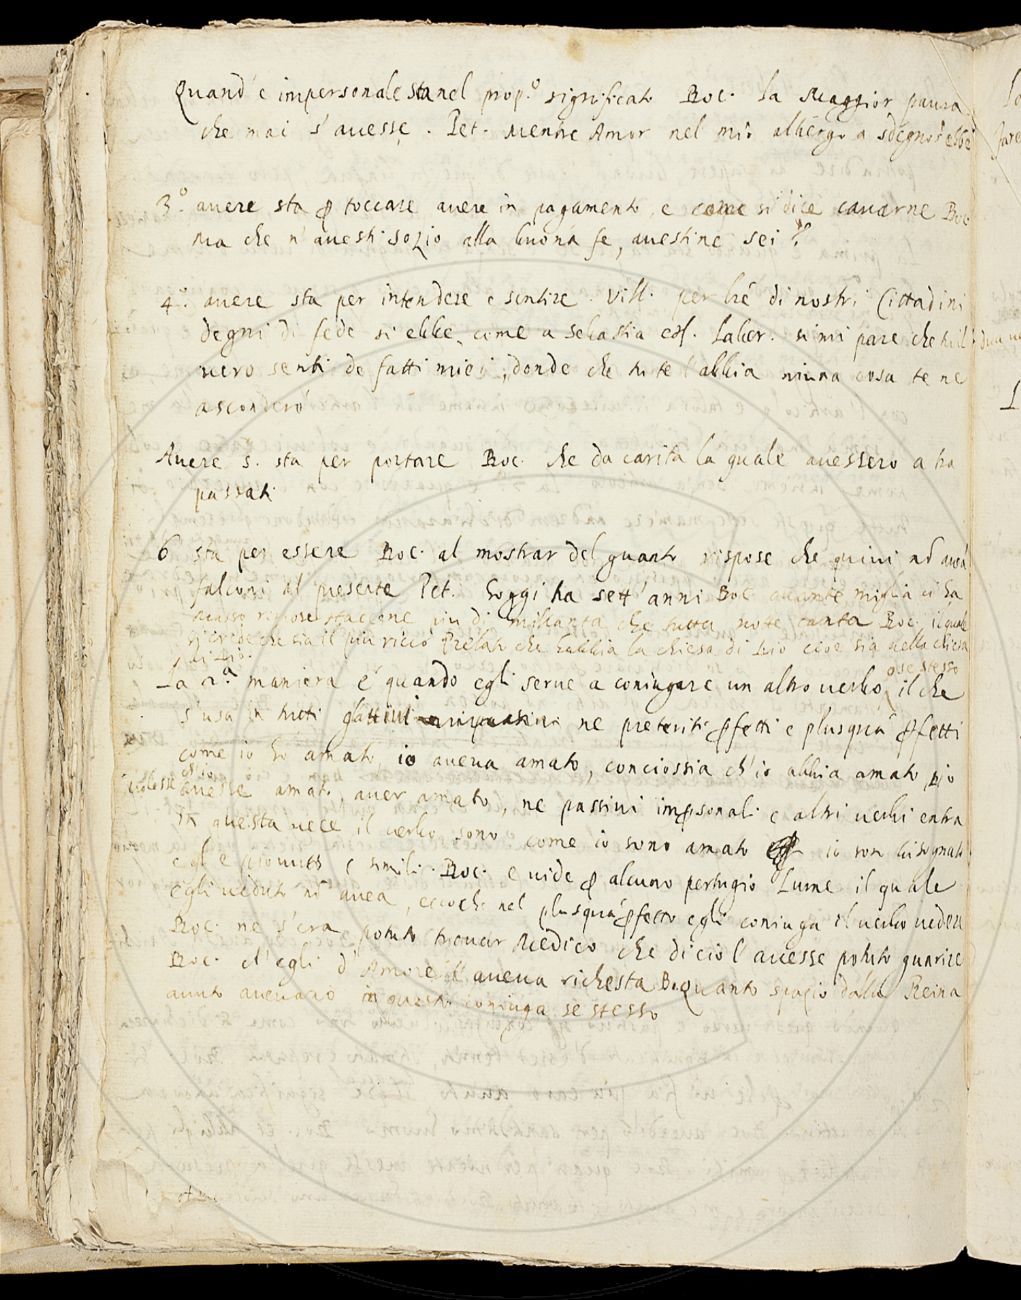 Quand'è impersonale sta nel prop.º significato Boc. la Maggior paura
che mai s'avesse. Pet. Mentre Amor nel mio albergo a sdegno s'ebbe
3.º avere sta per toccare avere in pagamento, e come si dice cavarne Boc
Ma che n'avesti sozio alla buona fe, avestine sei?
4.º avere sta per intendere e sentire. Vill. per tre di nostri Cittadini
degni di fede si ebbe, come a Sebastia ecc. Laber. si mi pare che tu il
vero senti de fatti miei, donde che tu te l'abbia niuna cosa te ne
asconderò
Avere 5. sta per portare Boc. che da carità la quale avessero a tra
passati
6 sta per essere Boc. al mostrar del guanto rispose che quivi nō avea
falconi al presente Pet. hoggi ha sett'anni Boc quante miglia ci ha
rispose haccene più di millanta che tutta notte canta Boc. il quale
si crede che sia il più ricco Prelato che habbia la chiesa di Dio cioè sia nella chiesa
di Dio.
La 2.ª maniera è quando egli serve a coniugare un altro verbo o se stesso il che
s'usa in tutti gl'attivi ne preteriti perfetti e plusquā perfetti
come io ho amato, io aveva amato, conciossia ch'io abbia amato, Dio
volesse ch'io avesse amato, aver amato, ne passivi impersonali e altri verbi entra
in questa vece il verbo sono come io sono amato io son bisognato
egl'è piovuto e simili. Boc. e vide per alcuno pertugio Lume il quale
egli veduto nō avea, ecco ch. nel plusquāperfetto egli coniuga il verbo vedere
Boc. ne s'era potuto trovar Medico che di ciò l'avesse potuto guarire
Boc. ch'egli d'Amore l'aveva richesta Boc. quanto spazio dalla Reina
avuto aveano in questo coniuga se stesso